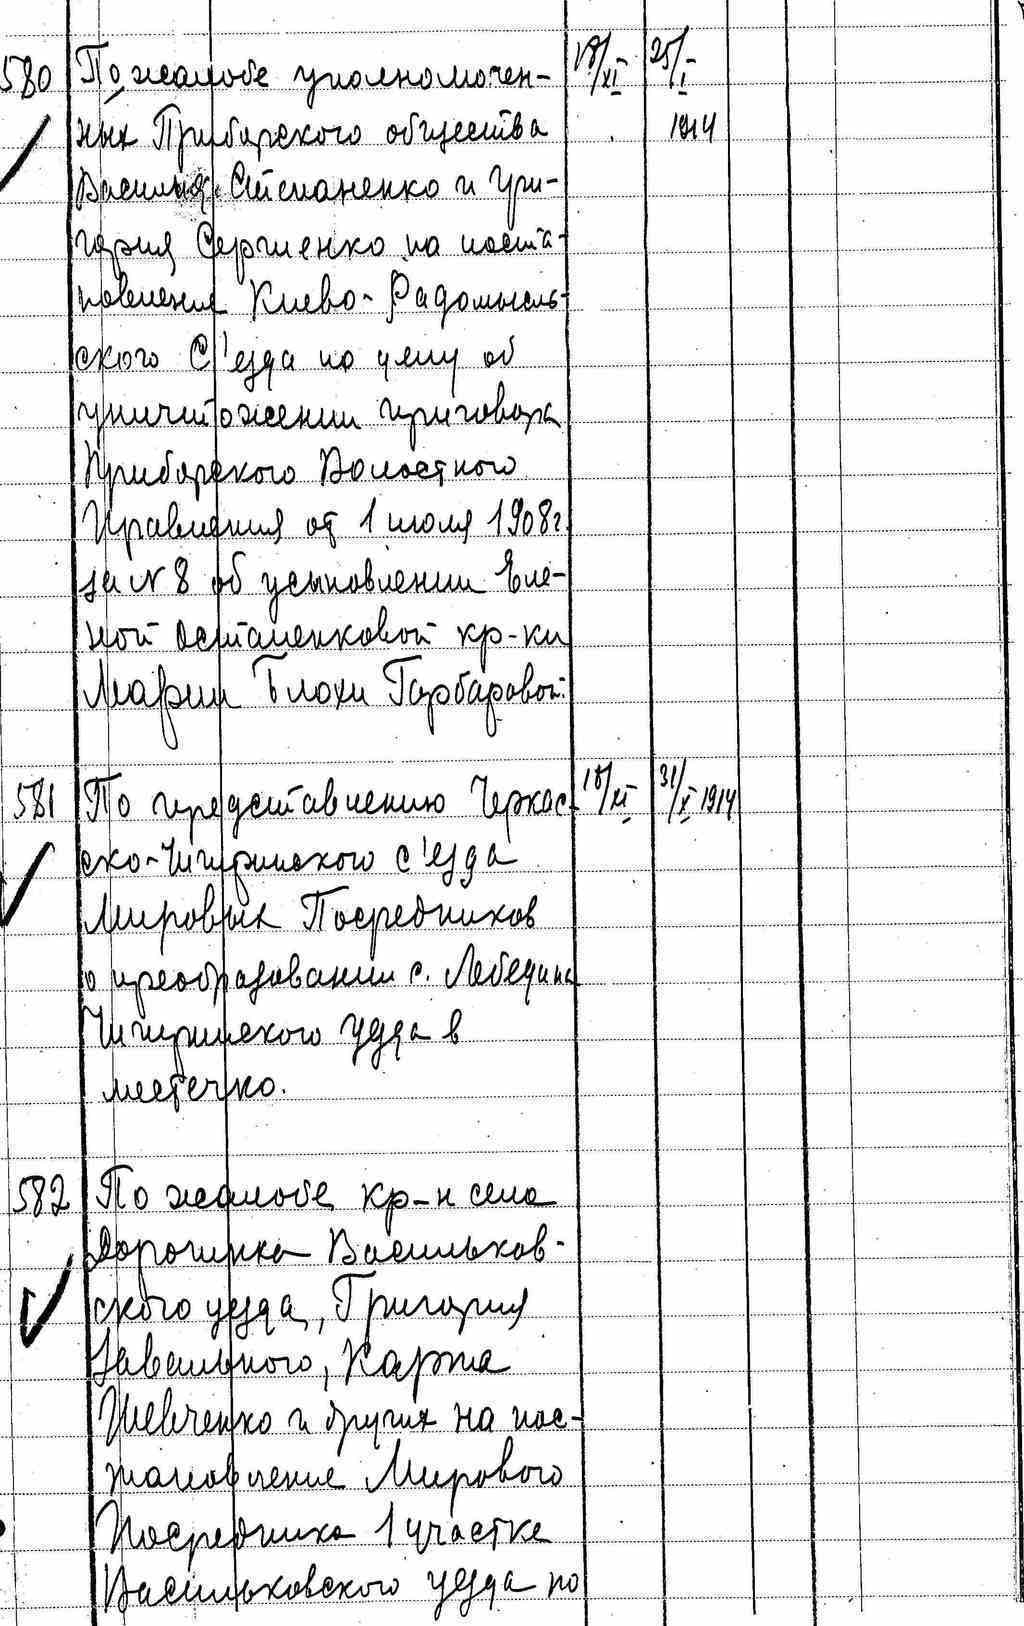 580 По жалобе уполномочен- 18/XI 25/I
ных Прибарского общества 1914
Василия Степаненко и Гри-
гория Сергиенко на поста-
новление Киево-Радомысль-
ского С'езда по делу об
уничтожении приговора
Прибарского Волостного
Правления от 1 июля 1908г.
за N 8 об усыновлении Еле-
ной Остапенковой кр-ки
Марии Блохи Гарбаровой.
581 По представлению Черкас- 18/XI 31/X 1914
ско-Чигиринского с'езда
Мировых Посредников
о преобразовании с. Лебедина
Чигиринского уезда в
местечко.
582 По жалобе кр-н села
Дорогинка Васильков-
ского уезда, Григория
Завального, Карпа
Шевченко и других на пос-
тановление Мирового
Посредника 1 участка
Васильковского уезда по